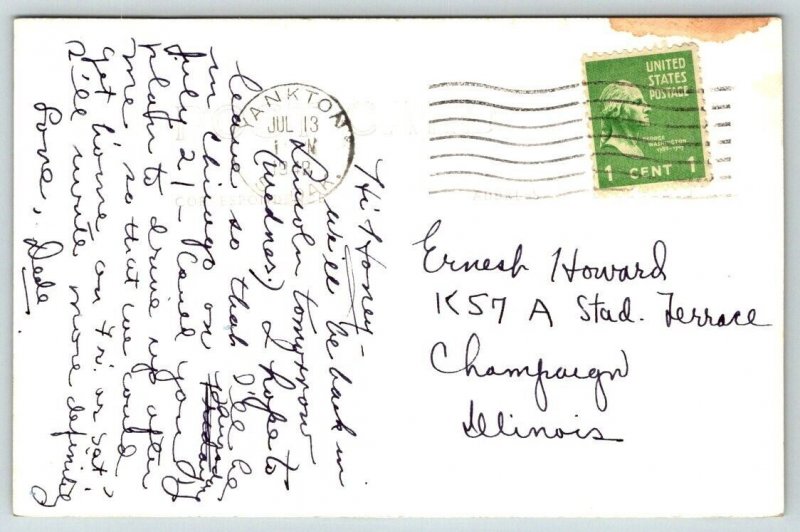 Hi Honey -
we'll be back in
Lincoln tomorrow
(Wednes.) I hope to
leave so that I'll be
in Chicago on
July 21 - Could you
plan to drive up after
me so that we could
get home on Fri. or Sat?
I'll write more definite
Love, Dede.
YANKTON
JUL 13
1948
UNITED
STATES
POSTAGE
GEORGE
WASHINGTON
1 CENT 1
POST CARD
CORRESPONDENCE
ADDRESS
Ernest Howard
K57 A Stad. Terrace
Champaign
Illinois